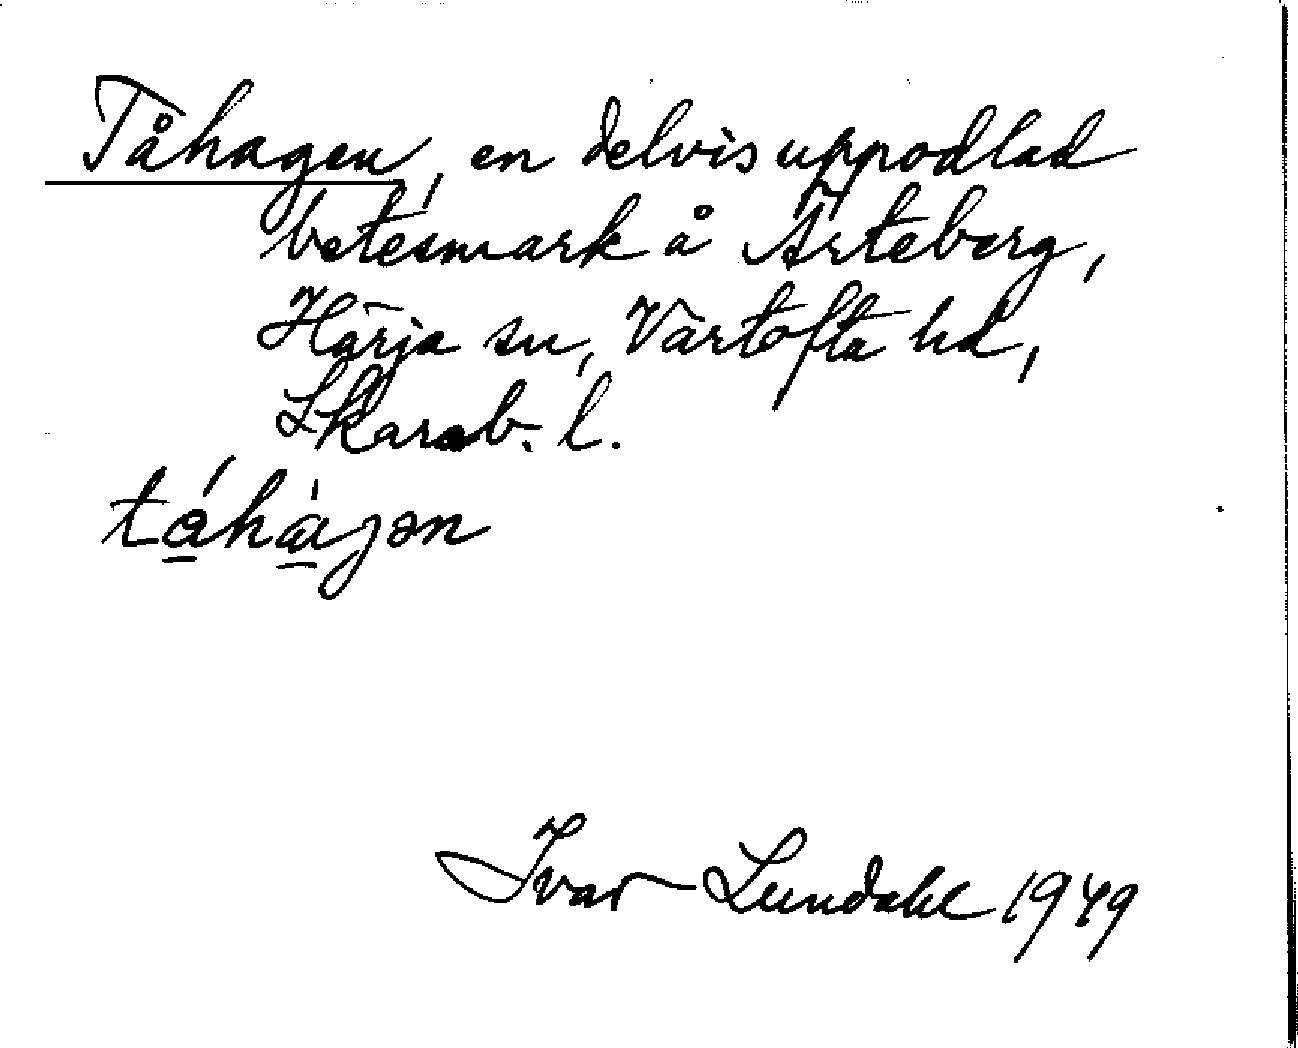 Tåhagen, en delvis uppodlad
betesmark å Ärteberg,
Härja sn, Vartofta hd,
Skarab. l.
tåhàjən
Ivar Lundahl 1949